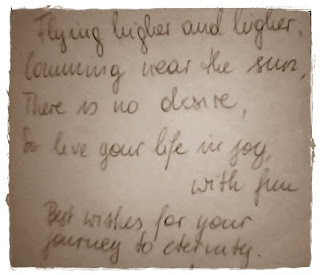 Flying higher and higher,
Comming near the sun,
There is no desire,
So live your life in joy,
with fun
Best wishes for your
journey to eternity.